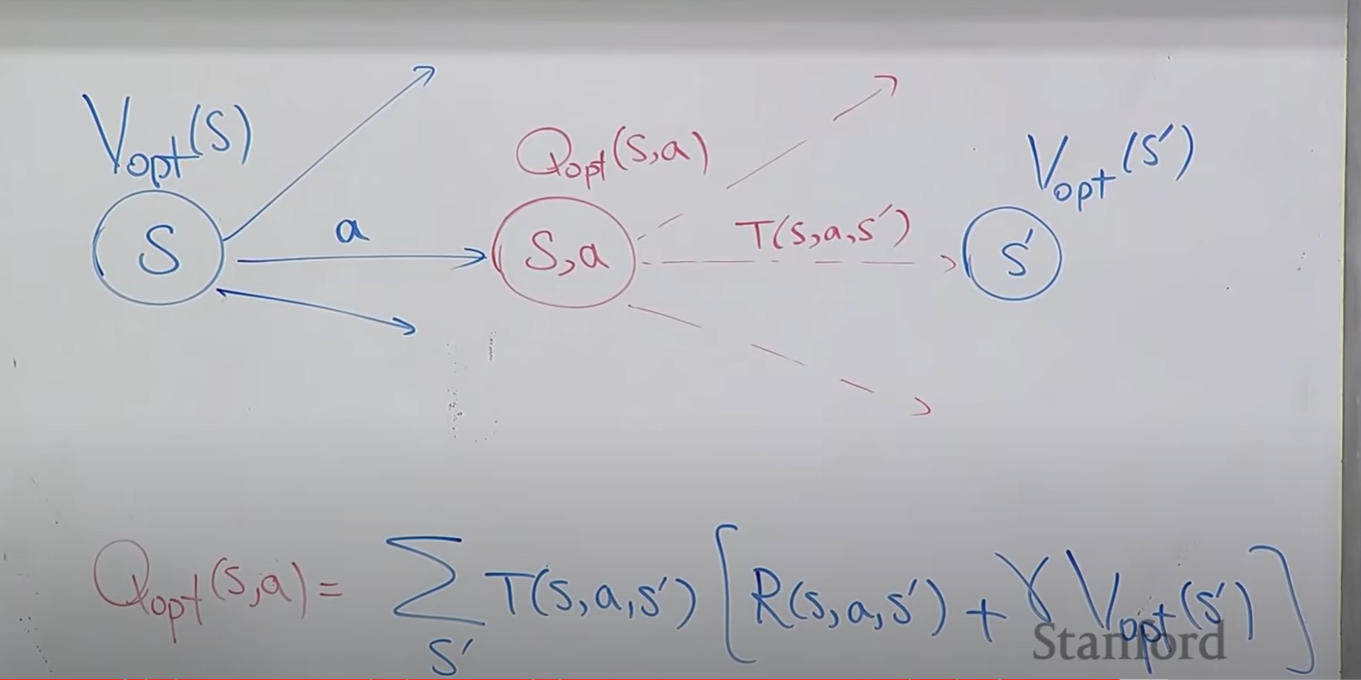 V_opt(S)
Q_opt(S,a)
V_opt(S′)
S
a
S,a
T(S,a,S′)
S′
Q_opt(S,a) = ∑_S′ T(S,a,S′) [R(S,a,S′) + γ V_opt(S′)]
Stanford